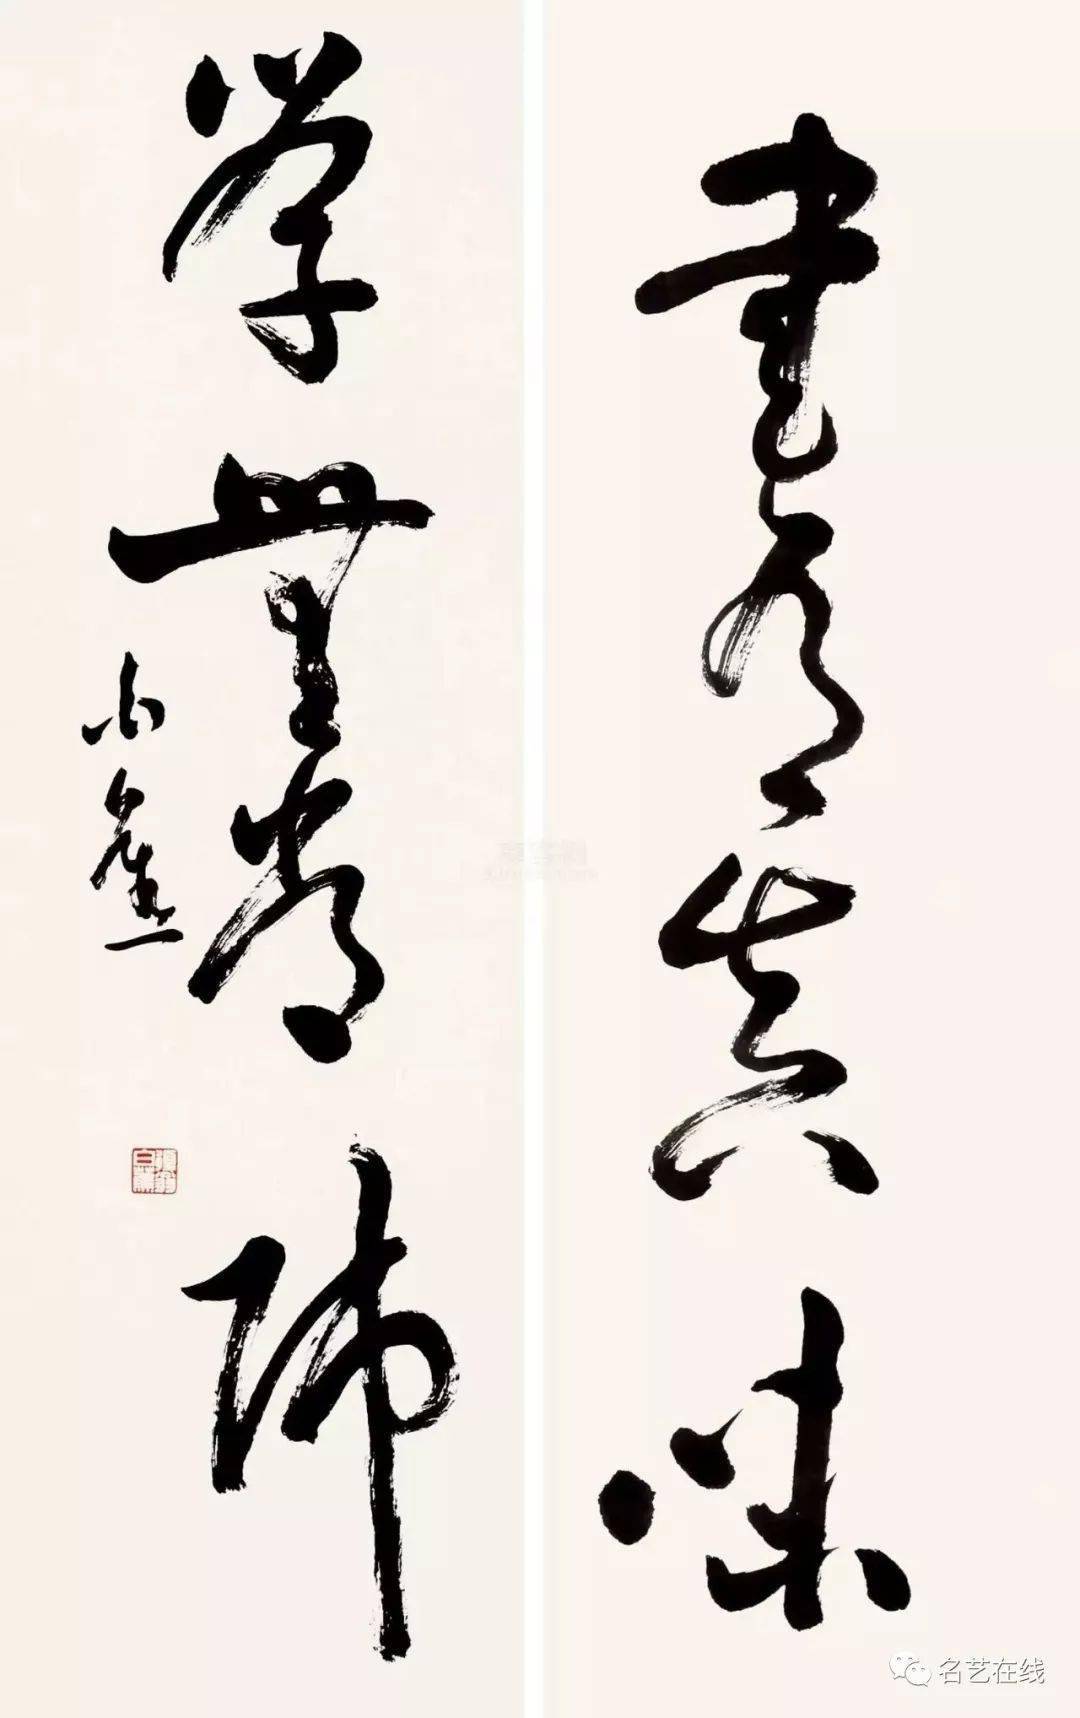 書有真味
學無常師
小蕉
名艺在线